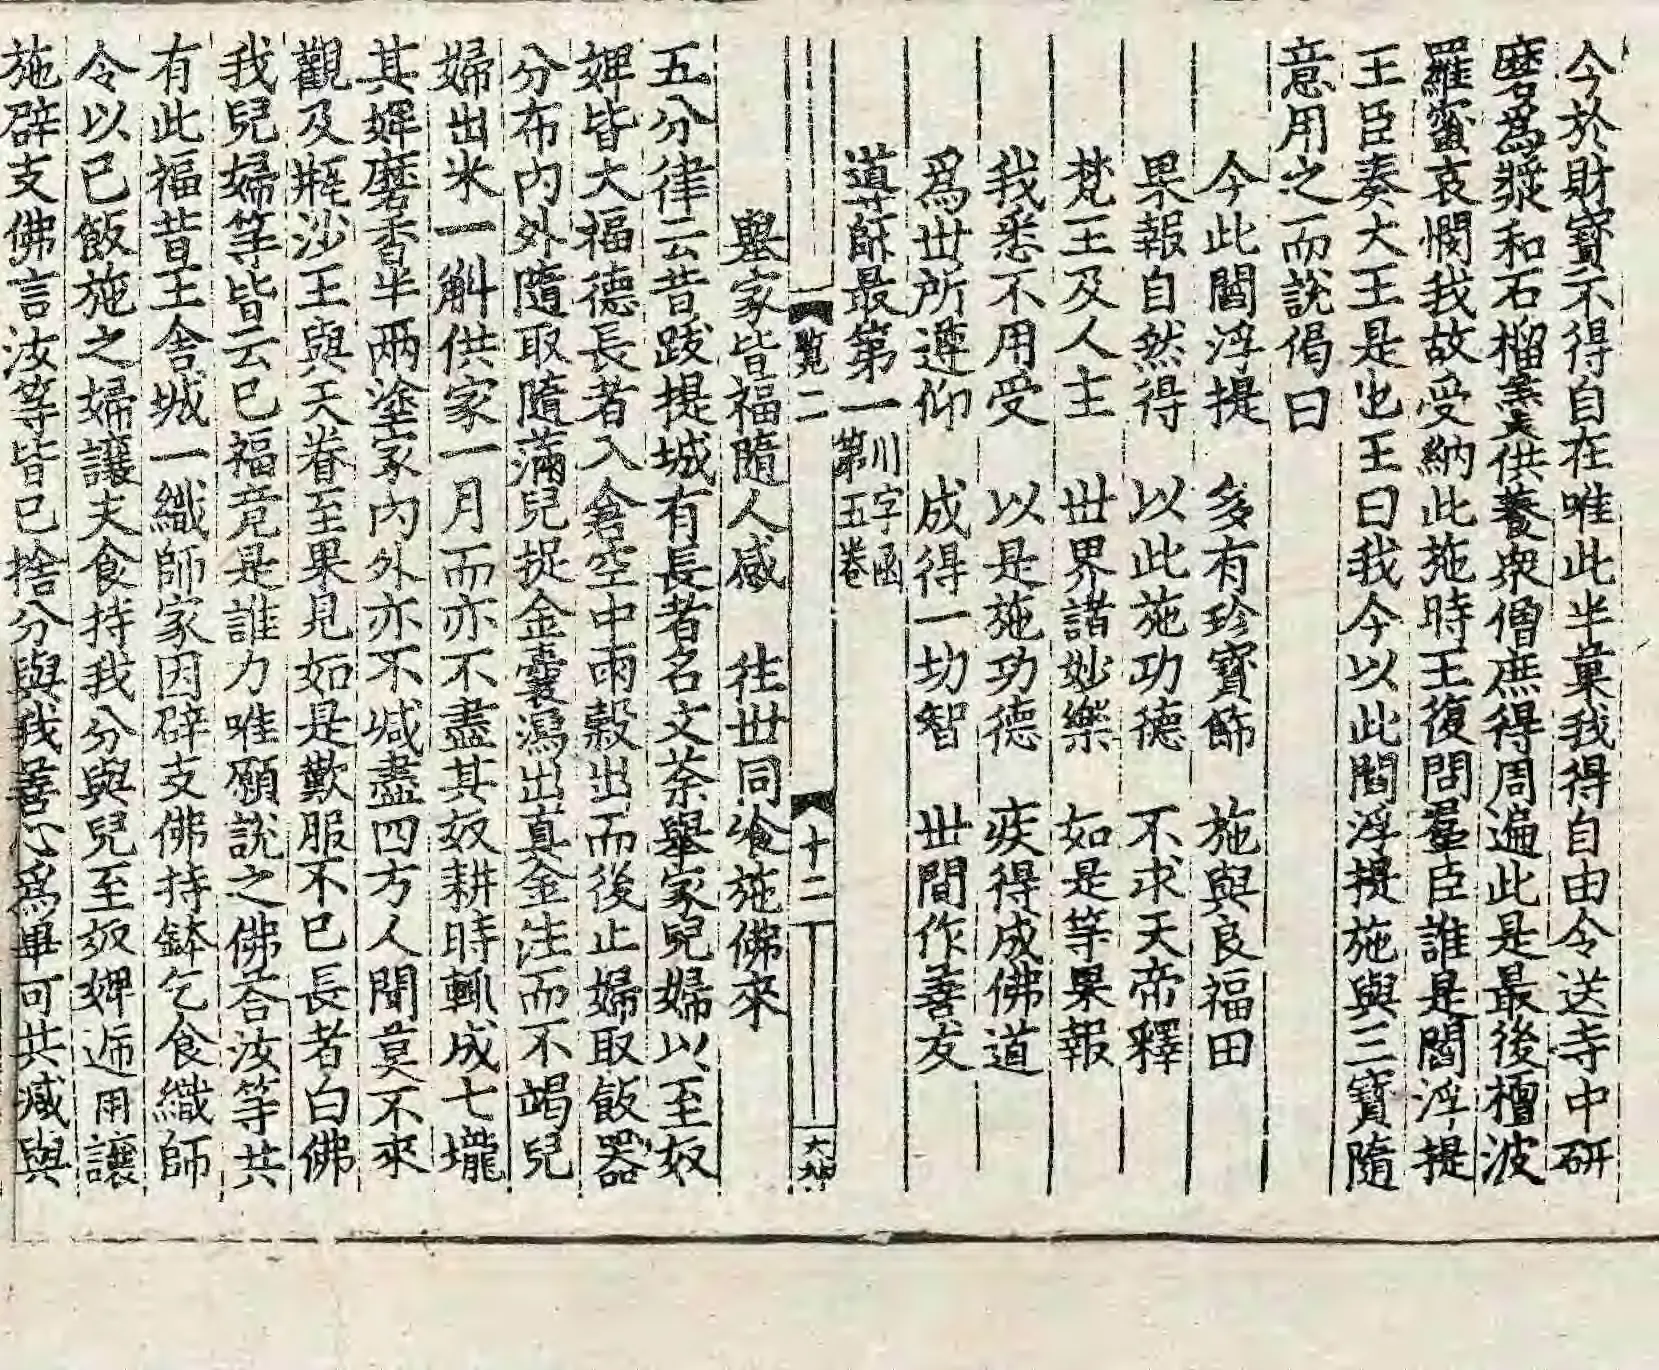 今於財寶不得自在唯此半菓我得自由令送寺中研
磨爲漿和石榴羹供養衆僧庶得周遍此是最後檀波
羅蜜哀憫我故受納此施時王復問羣臣誰是閻浮提
王臣奏大王是也王曰我今以此閻浮提施與三寶隨
意用之而說偈曰
今此閻浮提　多有珍寶飾　施與良福田
果報自然得　以此施功德　不求天帝釋
梵王及人主　世界諸妙樂　如是等果報
我悉不用受　以是施功德　疾得成佛道
爲世所遵仰　成得一切智　世間作善友
導師最第一　川字函第五卷
覧二　十二　大坤
舉家皆福隨人感　徃世同飡施佛來
五分律云昔跋提城有長者名文荼舉家兒婦以至奴
婢皆大福德長者入倉空中雨穀出而後止婦取飯器
分布內外隨取隨滿兒捉金囊瀉出真金注而不竭兒
婦出米一斛供家一月而亦不盡其奴耕時輒成七壠
其婢磨香半兩塗家內外亦不减盡四方人聞莫不來
觀及缾沙王與天眷至果見如是歎服不已長者白佛
我兒婦等皆云已福竟是誰力唯願說之佛荅汝等共
有此福昔王舍城一織師家因辟支佛持鉢乞食織師
令以已飯施之婦讓夫食持我分與兒至奴婢逓用讓
施辟支佛言汝等皆已捨分與我善心爲畢可共减與